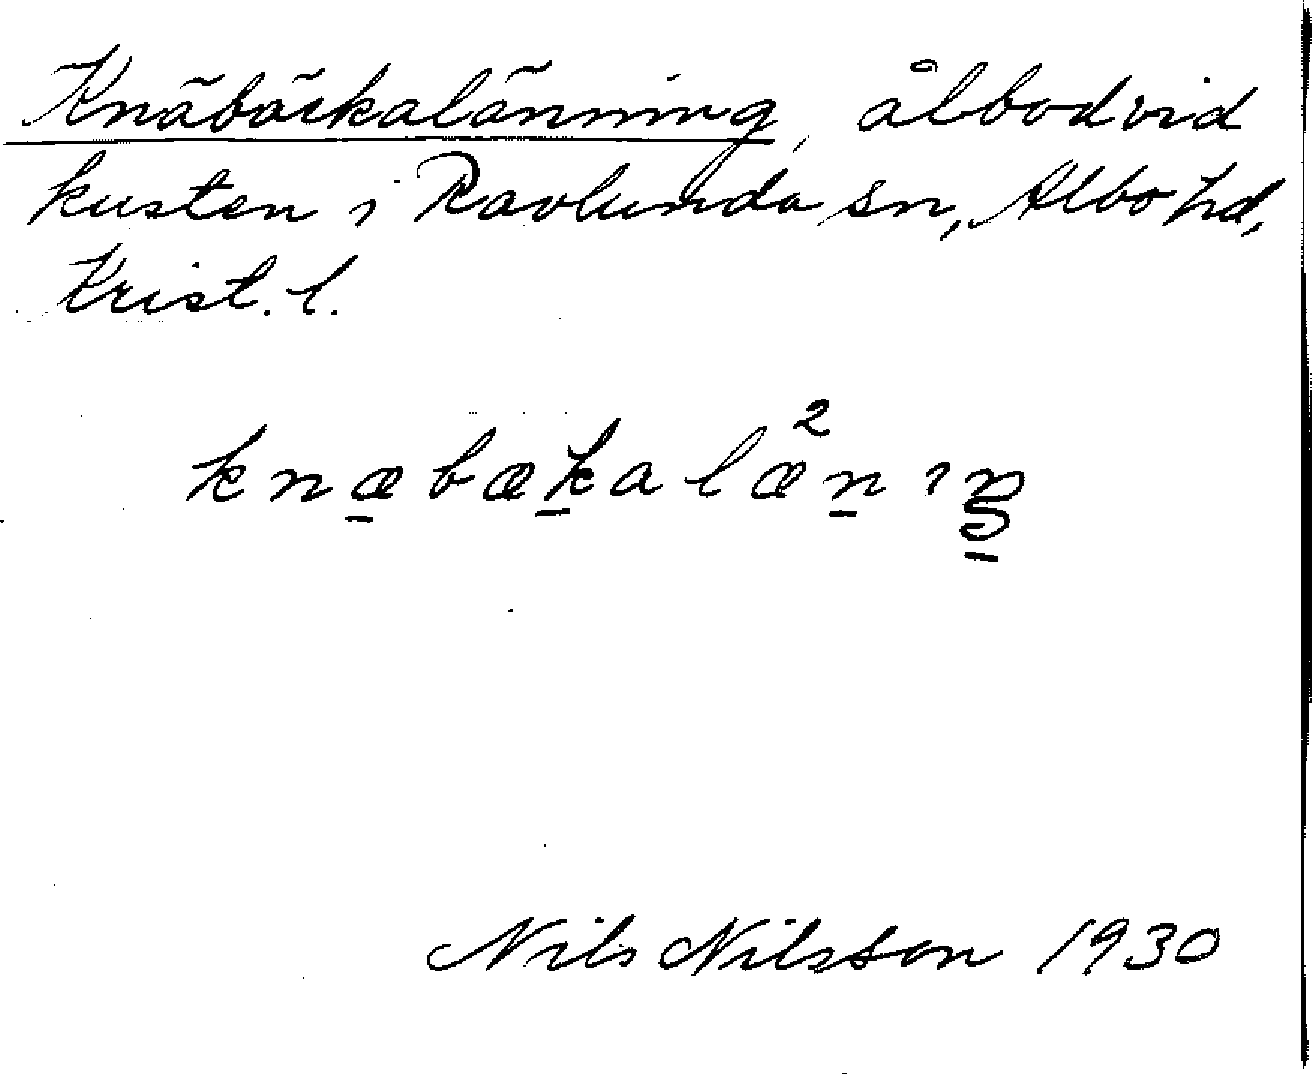 Knäbäckalänning, ålbod vid
kusten i Ravlunda sn, Albo hd,
Krist. l.
knæ̱bæḵalæ̊²ṉıŋ̱
Nils Nilsson 1930